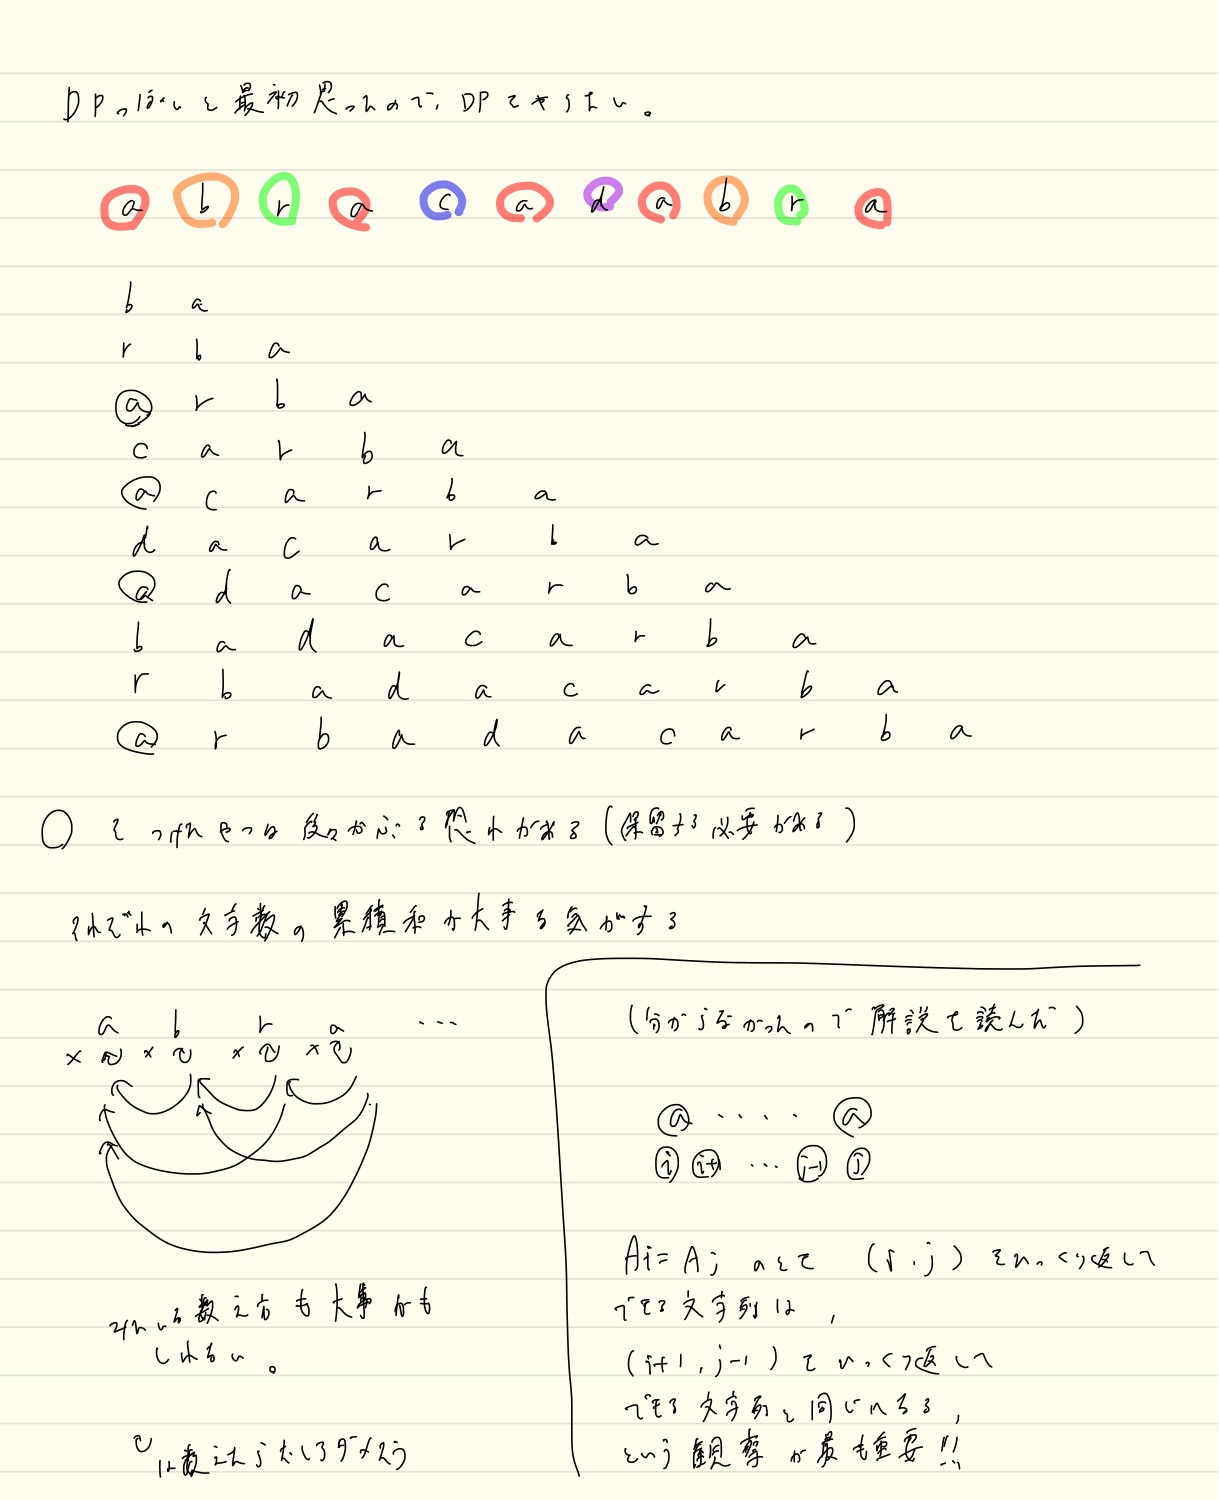 DPっぽいと最初思ったので、DPでやりたい。
a b r a c a d a b r a
b a
r b a
a r b a
c a r b a
a c a r b a
d a c a r b a
a d a c a r b a
b a d a c a r b a
r b a d a c a r b a
a r b a d a c a r b a
○ をつけたやつは後々かぶる恐れがある(保留する必要がある)
それぞれの文字数の累積和が大事な気がする
a b r a ...
× × × ×
数え方も大事かも
しれない。
は数えたらたしろダメそう
(分からなかったので解説を読んだ)
a ・・・・ a
i i+1 ... j-1 j
Ai=Aj のとき (i,j) をひっくり返して
できる文字列は,
(i+1,j-1) でひっくり返して
できる文字列と同じになる,
という観察が最も重要!!